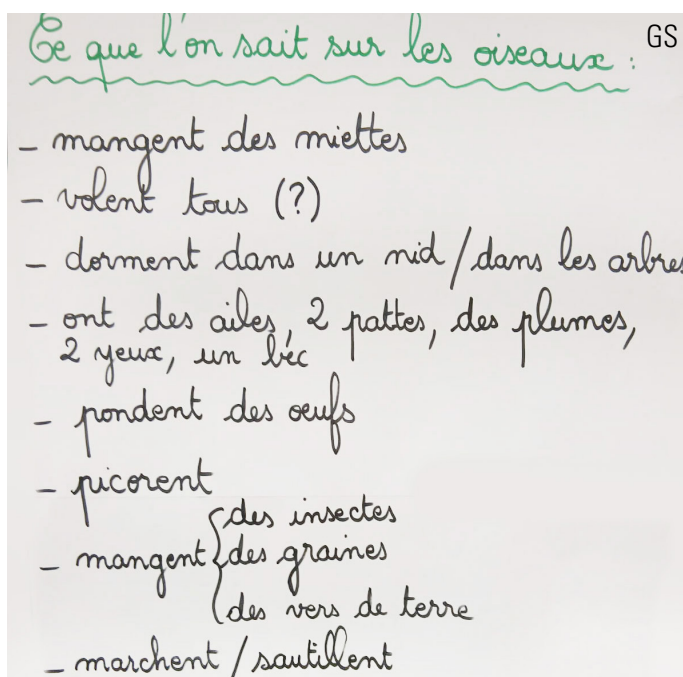 Ce que l'on sait sur les oiseaux :
GS
- mangent des miettes
- volent tous (?)
- dorment dans un nid / dans les arbres
- ont des ailes, 2 pattes, des plumes,
2 yeux, un bec
- pondent des oeufs
- picorent
- mangent { des insectes
des graines
des vers de terre
- marchent / sautillent